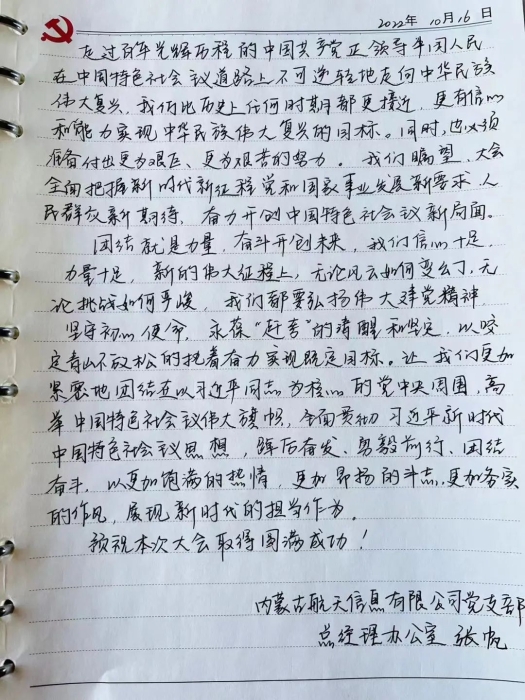 2022年 10月16日
走过百年光辉历程的中国共产党正领导中国人民
在中国特色社会议道路上不可逆转地走向中华民族
伟大复兴,我们比历史上任何时期都更接近、更有信心
和能力实现中华民族伟大复兴的目标。同时,也必须
准备付出更为艰巨、更为艰苦的努力。我们瞩望,大会
全面把握新时代新征程党和国家事业发展新要求、人
民群众新期待,奋力开创中国特色社会议新局面。
团结就是力量,奋斗开创未来,我们信心十足,
力量十足,新的伟大征程上,无论风云如何变幻,无
论挑战如何严峻,我们都要弘扬伟大建党精神
坚守初心使命,永葆“赶考”的清醒和坚定,以咬
定青山不放松的执着奋力实现既定目标。让我们更加
紧密地团结在以习近平同志为核心的党中央周围,高
举中国特色社会议伟大旗帜,全面贯彻习近平新时代
中国特色社会议思想,踔厉奋发、勇毅前行、团结
奋斗,以更加饱满的热情,更加昂扬的斗志,更加务实
的作风,展现新时代的担当作为。
预祝本次大会取得圆满成功!
内蒙古航天信息有限公司党支部
总经理办公室 张帆